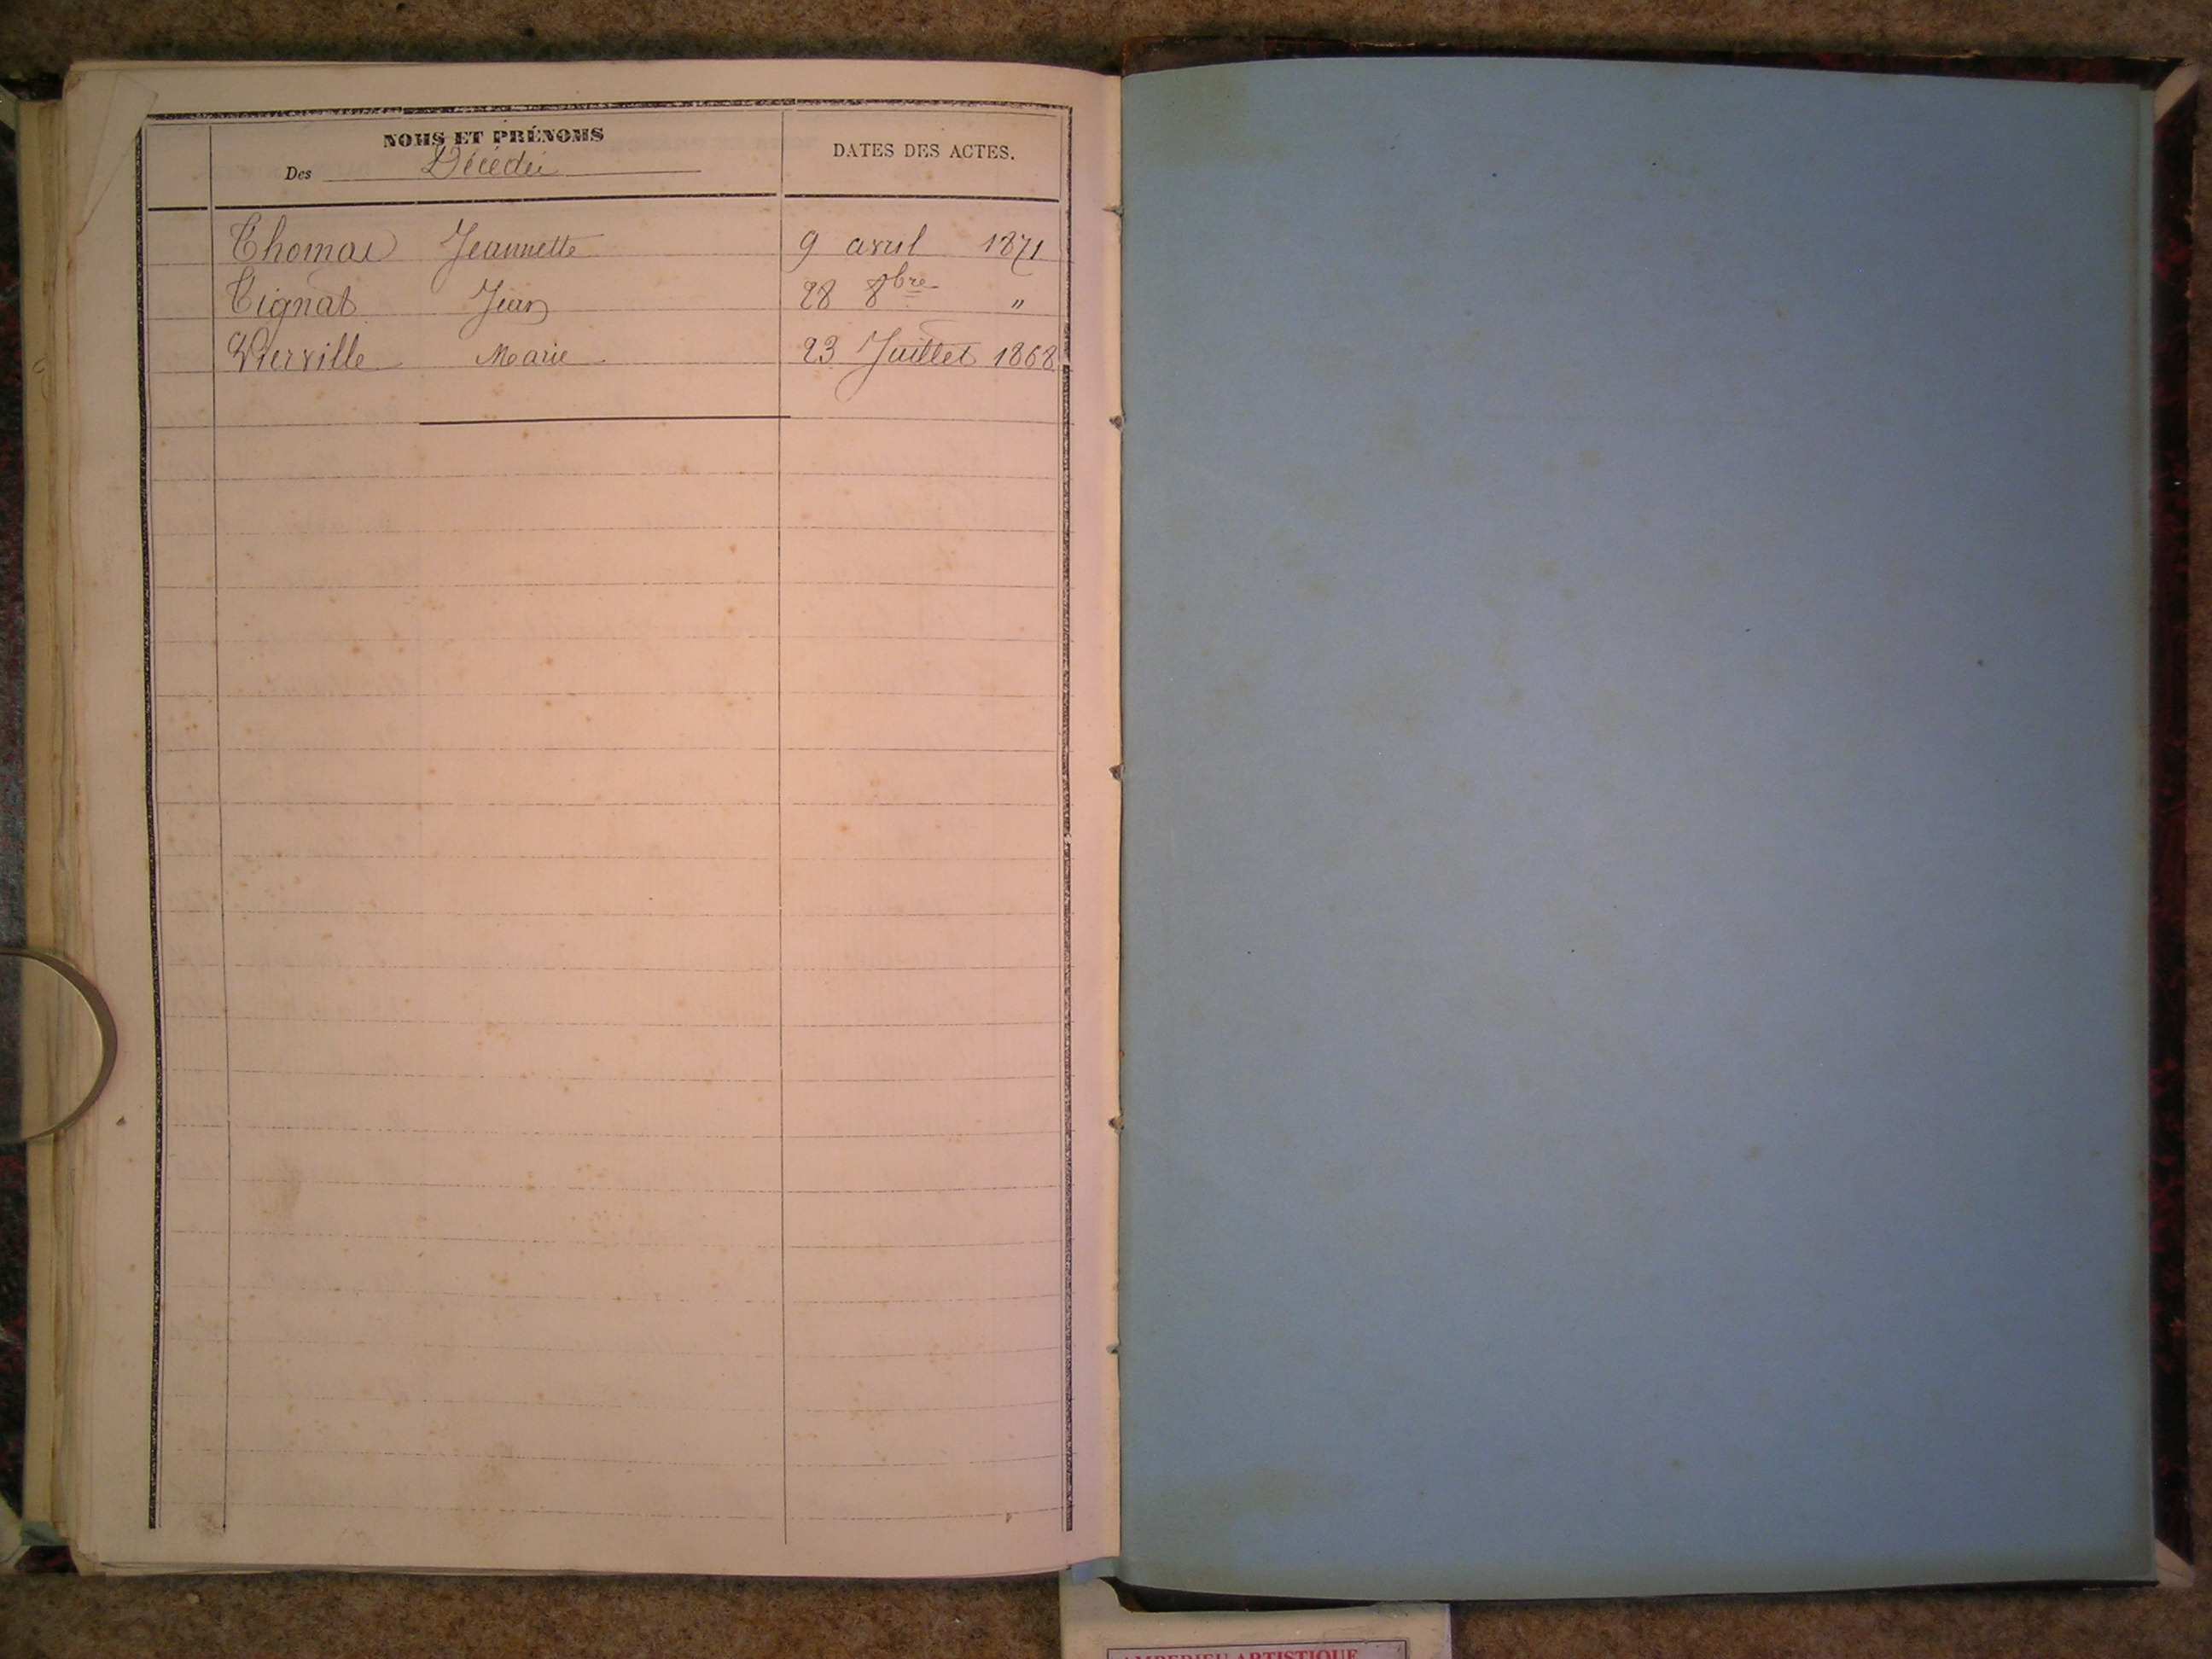 NOMS ET PRÉNOMS
Des Décédés
DATES DES ACTES.
Thomas Jeannette 9 avril 1871
Tignat Jean 28 8bre "
Vierville Marie 23 Juillet 1868
AMBERIEU ARTISTIQUE